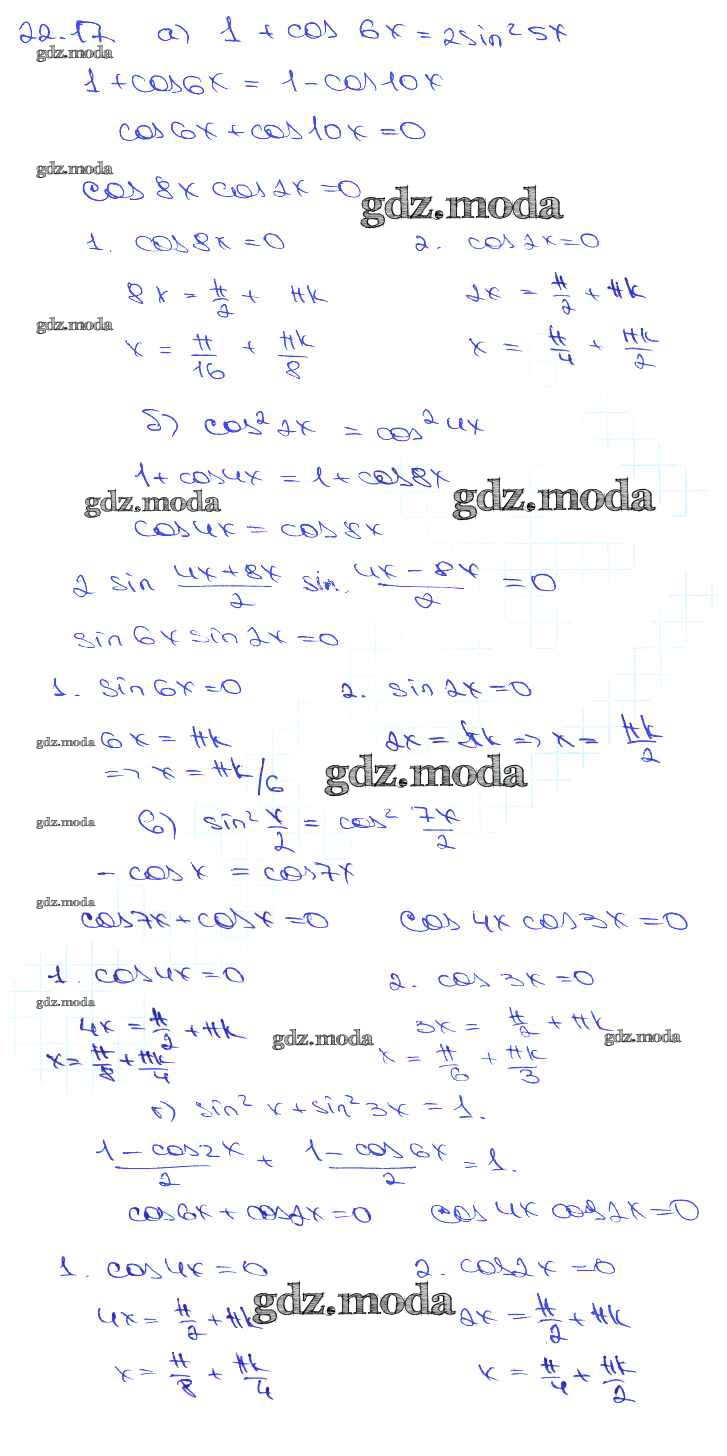 22.17 а) 1 + cos 6x = 2sin² 5x
gdz.moda
1 + cos6x = 1 - cos10x
cos6x + cos10x = 0
gdz.moda
cos 8x cos2x = 0
gdz.moda
1. cos8x = 0 2. cos2x = 0
8x = π/2 + πk 2x = π/2 + πk
gdz.moda
x = π/16 + πk/8 x = π/4 + πk/2
б) cos² 2x = cos² 4x
1 + cos4x = 1 + cos8x
gdz.moda gdz.moda
cos4x = cos8x
2 sin (4x + 8x)/2 sin (4x - 8x)/2 = 0
sin6x sin2x = 0
1. sin6x = 0 2. sin2x = 0
gdz.moda 6x = πk 2x = πk => x = πk/2
=> x = πk/6 gdz.moda
gdz.moda в) sin² x/2 = cos² 7x/2
- cosx = cos7x
gdz.moda
cos7x + cosx = 0 cos4x cos3x = 0
1. cos4x = 0 2. cos3x = 0
gdz.moda
4x = π/2 + πk 3x = π/2 + πk
gdz.moda gdz.moda
x = π/8 + πk/4 x = π/6 + πk/3
г) sin² x + sin² 3x = 1.
(1 - cos2x)/2 + (1 - cos6x)/2 = 1.
cos6x + cos2x = 0 cos4x cos2x = 0
1. cos4x = 0 2. cos2x = 0
gdz.moda
4x = π/2 + πk 2x = π/2 + πk
x = π/8 + πk/4 x = π/4 + πk/2